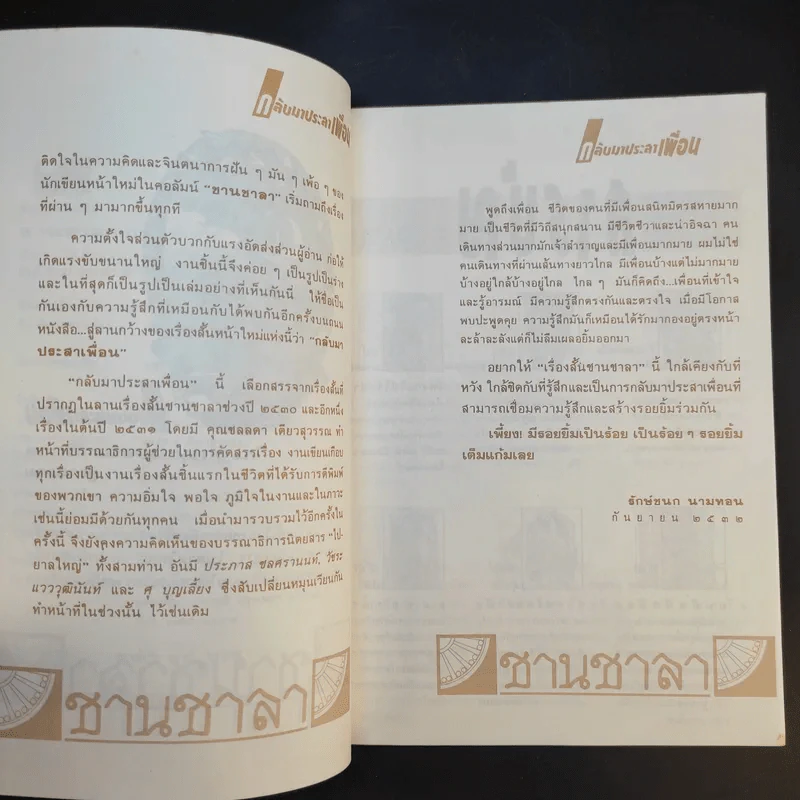 กลับมาประลาเพื่อน
ติดใจในความคิดและจินตนาการฝัน ๆ มัน ๆ เพ้อ ๆ ของ
นักเขียนหน้าใหม่ในคอลัมน์ "ชานชาลา" เริ่มถามถึงเรื่อง
ที่ผ่าน ๆ มามากขึ้นทุกที
ความตั้งใจส่วนตัวบวกกับแรงอัดส่งส่วนผู้อ่าน ก่อให้
เกิดแรงขับขนานใหญ่ งานชิ้นนี้จึงค่อย ๆ เป็นรูปเป็นร่าง
และในที่สุดก็เป็นรูปเป็นเล่มอย่างที่เห็นกันนี่ ให้ชื่อเป็น
กันเองกับความรู้สึกที่เหมือนกับได้พบกันอีกครั้งบนถนน
หนังสือ...สู่ลานกว้างของเรื่องสั้นหน้าใหม่แห่งนี้ว่า "กลับมา
ประสาเพื่อน"
"กลับมาประสาเพื่อน" นี้ เลือกสรรจากเรื่องสั้นที่
ปรากฏในลานเรื่องสั้นชานชาลาช่วงปี ๒๕๓๐ และอีกหนึ่ง
เรื่องในต้นปี ๒๕๓๑ โดยมี คุณชลลดา เตียวสุวรรณ ทำ
หน้าที่บรรณาธิการผู้ช่วยในการคัดสรรเรื่อง งานเขียนเกือบ
ทุกเรื่องเป็นงานเรื่องสั้นชิ้นแรกในชีวิตที่ได้รับการตีพิมพ์
ของพวกเขา ความอิ่มใจ พอใจ ภูมิใจในงานและในภาวะ
เช่นนี้ย่อมมีด้วยกันทุกคน เมื่อนำมารวบรวมไว้อีกครั้งใน
ครั้งนี้ จึงยังคงความคิดเห็นของบรรณาธิการนิตยสาร "ไป-
ยาลใหญ่" ทั้งสามท่าน อันมี ประภาส ชลศรานนท์, วัชระ
แวววุฒินันท์ และ ศุ บุญเลี้ยง ซึ่งสับเปลี่ยนหมุนเวียนกัน
ทำหน้าที่ในช่วงนั้น ไว้เช่นเดิม
ชานชาลา
กลับมาประลาเพื่อน
พูดถึงเพื่อน ชีวิตของคนที่มีเพื่อนสนิทมิตรสหายมาก
มาย เป็นชีวิตที่มีวิถีสนุกสนาน มีชีวิตชีวาและน่าอิจฉา คน
เดินทางส่วนมากมักเจ้าสำราญและมีเพื่อนมากมาย ผมไม่ใช่
คนเดินทางที่ผ่านเส้นทางยาวไกล มีเพื่อนบ้างแต่ไม่มากมาย
บ้างอยู่ใกล้บ้างอยู่ไกล ไกล ๆ มันก็คิดถึง...เพื่อนที่เข้าใจ
และรู้อารมณ์ มีความรู้สึกตรงกันและตรงใจ เมื่อมีโอกาส
พบปะพูดคุย ความรู้สึกมันก็เหมือนได้รักมากองอยู่ตรงหน้า
ละล้าละลังแต่ก็ไม่ลืมเผลอยิ้มออกมา
อยากให้ "เรื่องสั้นชานชาลา" นี้ ใกล้เคียงกับที่
หวัง ใกล้ชิดกับที่รู้สึกและเป็นการกลับมาประสาเพื่อนที่
สามารถเชื่อมความรู้สึกและสร้างรอยยิ้มร่วมกัน
เพี้ยง! มีรอยยิ้มเป็นร้อย เป็นร้อย ๆ รอยยิ้ม
เติมแก้มเลย
รักษ์ชนก นามทอน
กันยายน ๒๕๓๒
ชานชาลา